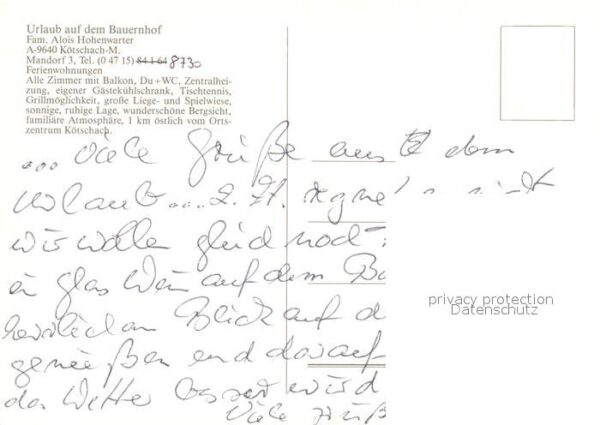 Urlaub auf dem Bauernhof
Fam. Alois Hohenwarter
A-9640 Kötschach-M.
Mandorf 3, Tel. (0 47 15) 84 1 64 8730
Ferienwohnungen
Alle Zimmer mit Balkon, Du+WC, Zentralhei-
zung, eigener Gästekühlschrank, Tischtennis,
Grillmöglichkeit, große Liege- und Spielwiese,
sonnige, ruhige Lage, wunderschöne Bergsicht,
familiäre Atmosphäre, 1 km östlich vom Orts-
zentrum Kötschach.
... viele Grüße aus dem
Urlaub... z. Zt. regnet
wir wollen gleich noch
ein Glas Wein auf dem Ba
herrlichen Blick auf d
genießen und darauf
das Wetter besser wird
Viele Grüß
privacy protection
Datenschutz